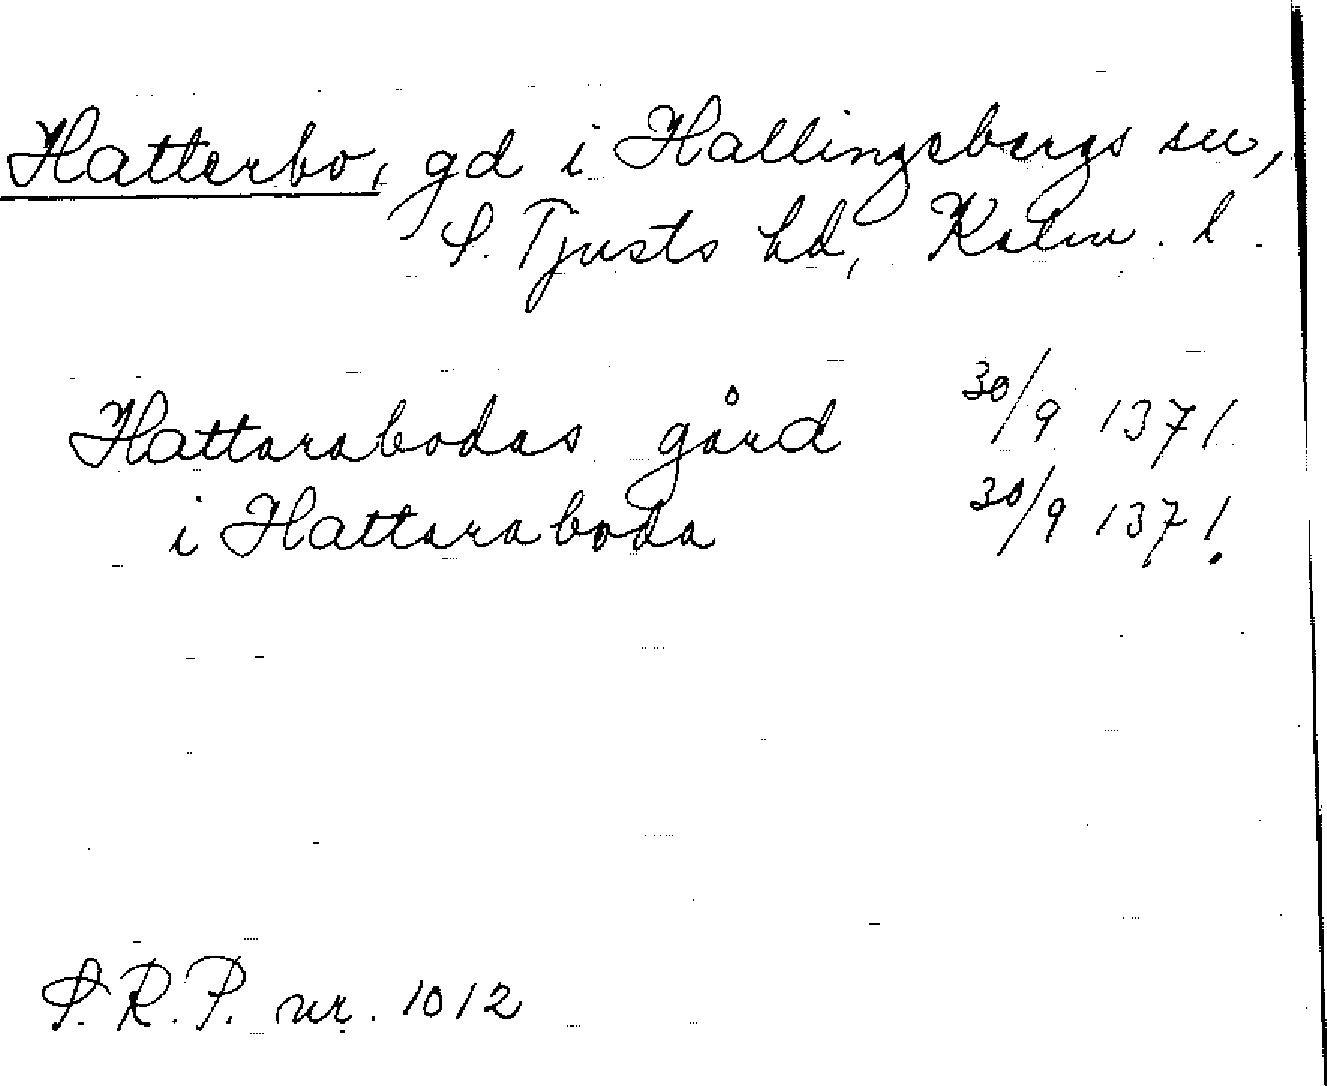 Hatterbo, gd i Hallingebergs sn,
S. Tjusts hd, Kalm. l.
Hattarabodas gård 30/9 1371.
i Hattaraboda 30/9 1371.
S.R.P. nr. 1012